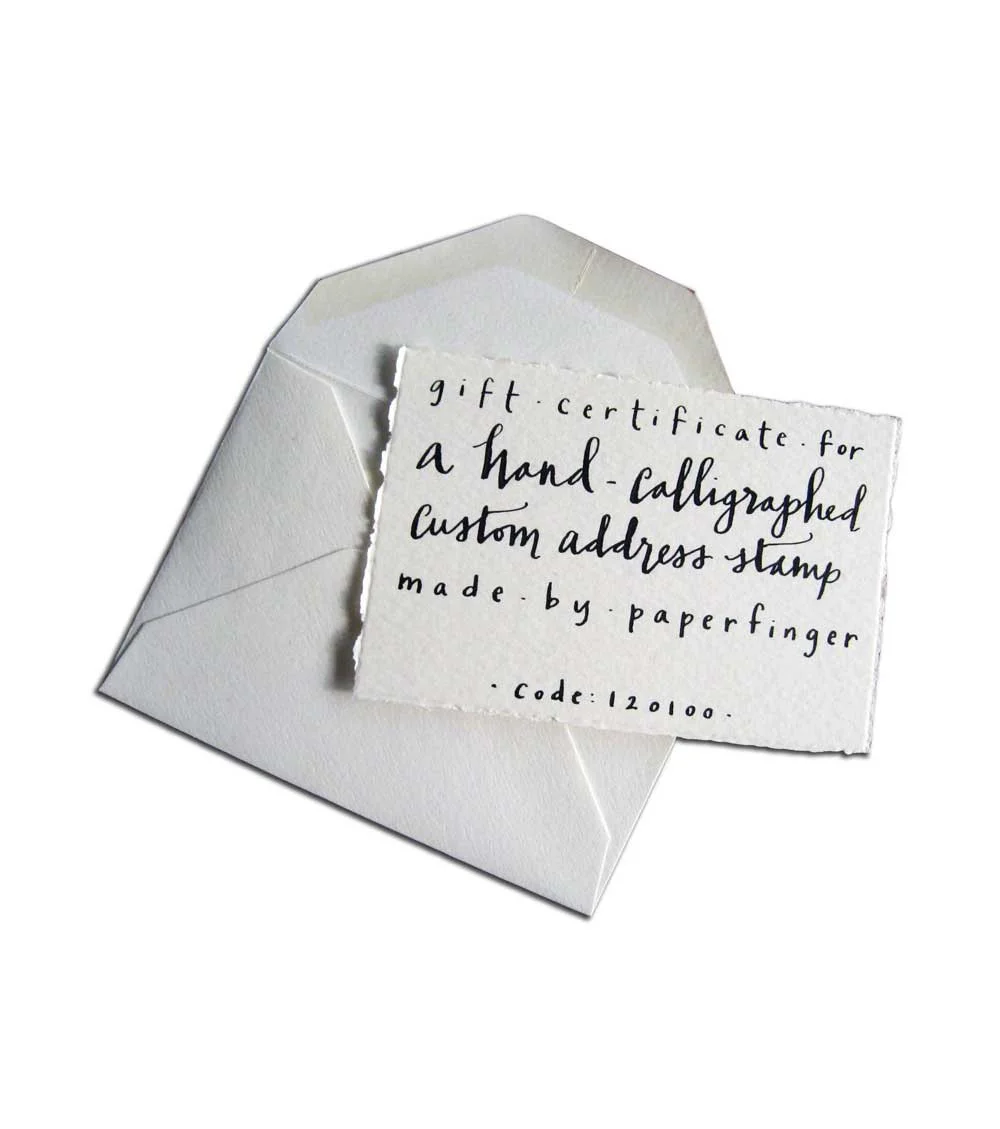 gift · certificate · for
a hand - calligraphed
custom address stamp
made · by · paperfinger
· code: 120100 ·